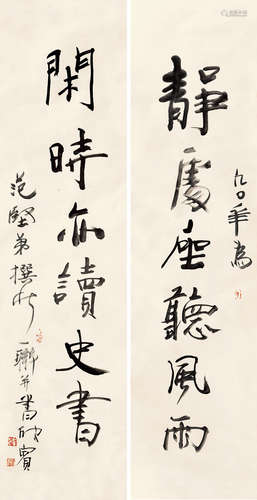 靜處坐聽風雨
九〇年為
閑時亦讀史書
范堅弟撰此一聯并書